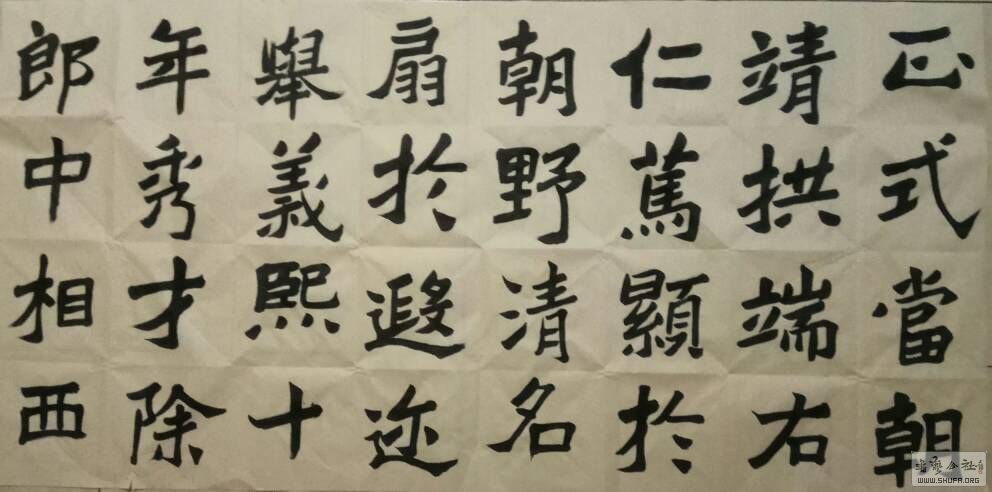 正式當朝
靖拱端右
仁篤顯於
朝野清名
扇於遐迩
舉義熙十
年秀才除
郎中相西
書法公社
WWW.SHUFA.ORG